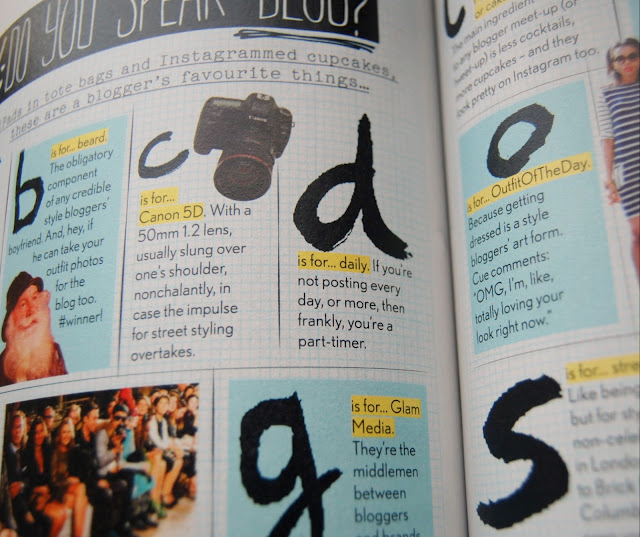 DO YOU SPEAK BLOG?
in tote bags and Instagrammed cupcakes,
these are a blogger's favourite things...
b
is for... beard.
The obligatory
component
of any credible
style bloggers'
boyfriend. And, hey, if
he can take your
outfit photos
for the
blog too.
#winner!
c
Canon
is for...
Canon 5D. With a
50mm 1.2 lens,
usually slung over
one's shoulder,
nonchalantly, in
case the impulse
for street styling
overtakes.
d
is for... daily. If you're
not posting every
day, or more, then
frankly, you're a
part-timer.
g
is for... Glam
Media.
They're the
middlemen
between
bloggers
and brands
The main ingredient
to any blogger meet-up (or
tweet-up) is less cocktails,
more cupcakes – and they
look pretty on Instagram too.
o
is for... OutfitOfTheDay.
Because getting
dressed is a style
bloggers' art form.
Cue comments:
"OMG, I'm, like,
totally loving your
look right now."
s
is for...
Like being
but for
non-
in London
to Brick